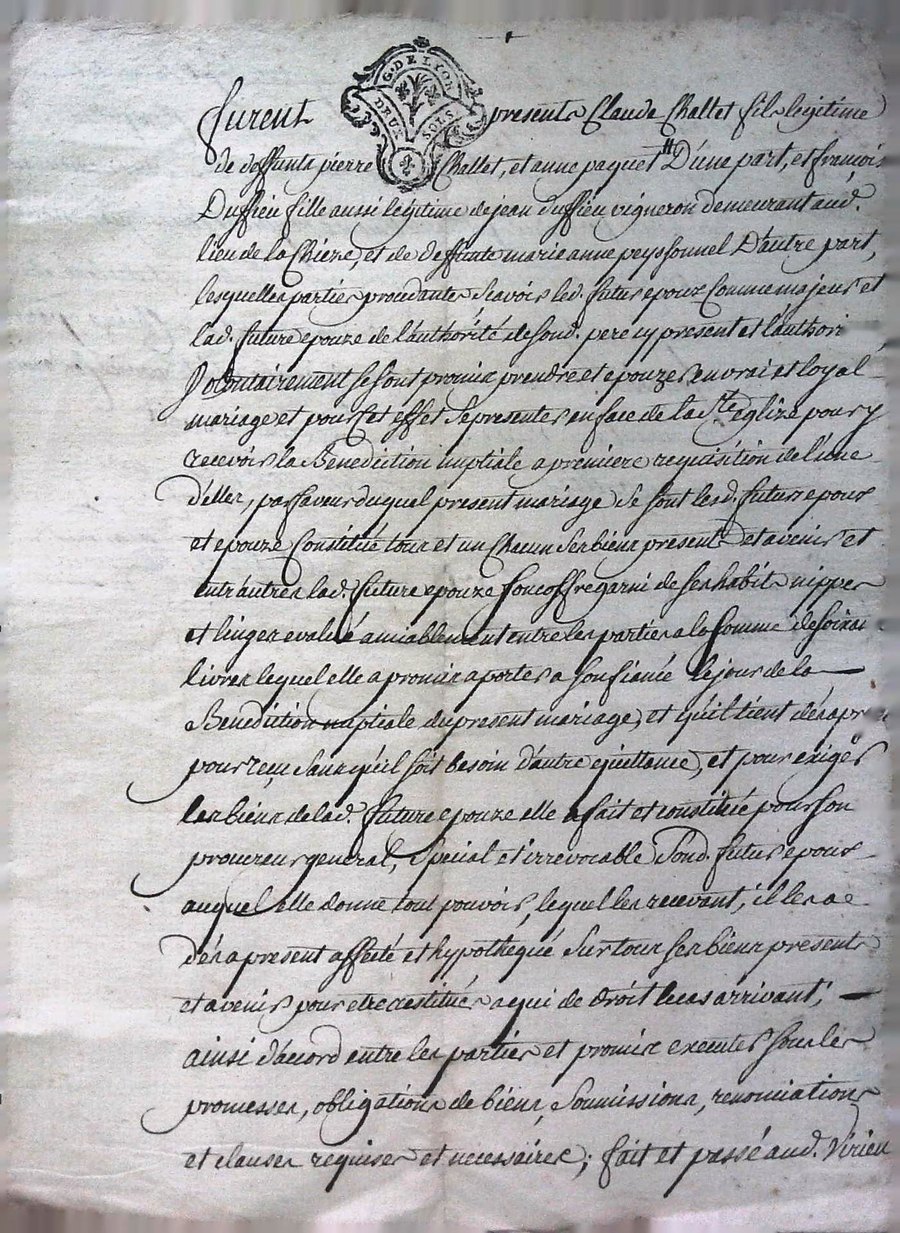 G. DE LYON
DEUX SOLS
furent presents Claude Challet fils legitime
de deffunts pierre Challet, et anne paquet D'une part, et françois
Duffieu fille aussi legitime de jean duffieu vigneron demeurant aud.
lieu de la Chieze, et de deffunte marie anne peyssonnel D'autre part,
lesquelles parties procedantes scavoir led. futur epoux Comme majeur et
lad. future epouze de l'authorité de sond. pere cy present et l'authori
volontairement se sont promis prendre et epouzer en vrai et loyal
mariage et pour Cet effet se presenter en face de la Ste. eglize pour y
recevoir la Benediction nuptiale a premiere requisition de l'une
d'elles, par faveur duquel present mariage se sont lesd. futurs epoux
et epouze Constitué tous et un Chacun ses biens presents et avenir et
entr'autres lad. future epouze son coffre garni de ses habits nippes
et linges evalué amiablement entre les parties a la somme de soixa
livres lequel elle a promis aporter a son fiancé le jour de la
Benediction nuptiale du present mariage, et qu'il tient dès apre
pour reçu sans qu'il soit besoin d'autre quittance, et pour exiger
les biens de lad. future epouze elle a fait et constitué pour son
procureur general, special et irrevocable sond. futur epoux
auquel elle donne tout pouvoir, lequel les recevant, il les a
dès a present affecté et hypothequé sur tous ses biens presents
et avenir pour etre restitués a qui de droit le cas arrivant,
ainsi d'acord entre les parties et promis executer sous les
promesses, obligations de biens, soumissions, renonciations
et clauses requises et necessaires; fait et passé aud. Virieu